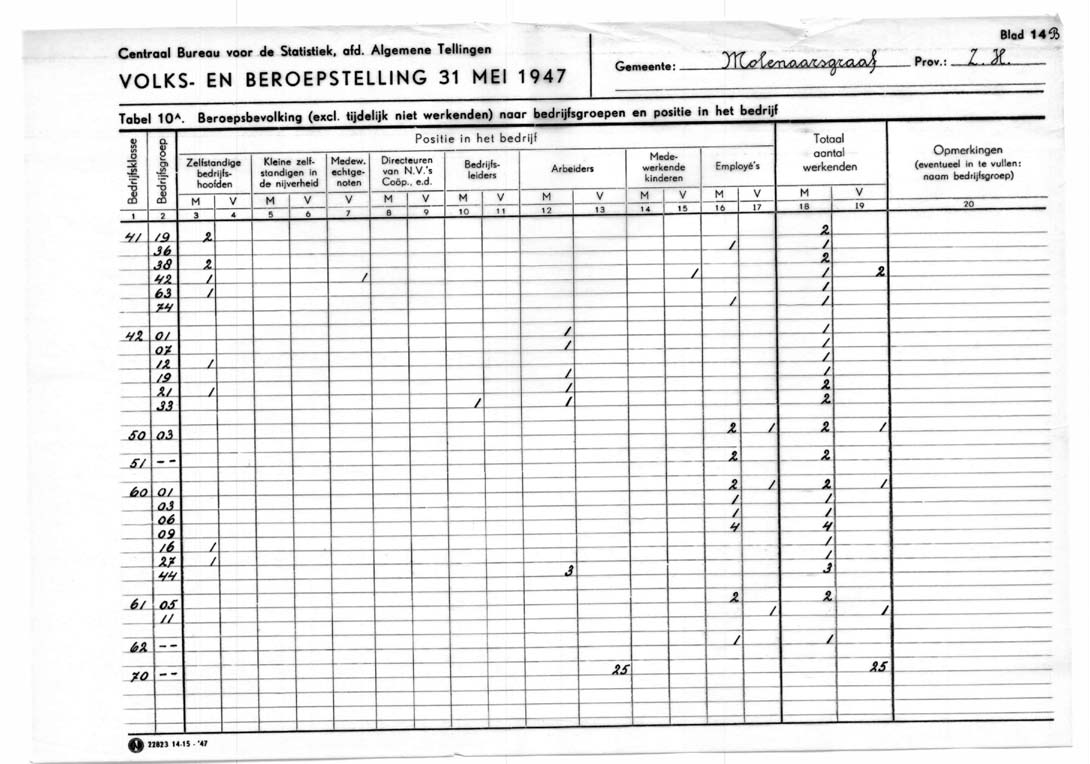 Blad 14B
Centraal Bureau voor de Statistiek, afd. Algemene Tellingen
VOLKS- EN BEROEPSTELLING 31 MEI 1947
Gemeente: Molenaarsgraaf Prov.: Z. H.
Tabel 10A. Beroepsbevolking (excl. tijdelijk niet werkenden) naar bedrijfsgroepen en positie in het bedrijf
Bedrijfsklasse Bedrijfsgroep Positie in het bedrijf Totaal aantal werkenden Opmerkingen (eventueel in te vullen: naam bedrijfsgroep)
Zelfstandige bedrijfs-hoofden Kleine zelf-standigen in de nijverheid Medew. echtge-noten Directeuren van N.V.'s Coöp., e.d. Bedrijfs-leiders Arbeiders Mede-werkende kinderen Employé's
M V M V V M V M V M V M V M V M V
1 2 3 4 5 6 7 8 9 10 11 12 13 14 15 16 17 18 19 20
41 19 2 2
36 1 1
38 2 2
42 1 1 1 1 2
63 1 1
74 1 1
42 01 1 1
07 1 1
12 1 1
19 1 1
21 1 1 2
33 1 1 2
50 03 2 1 2 1
51 -- 2 2
60 01 2 1 2 1
03 1 1
06 1 1
09 4 4
16 1 1
27 1 1
44 3 3
61 05 2 2
11 1 1
62 -- 1 1
70 -- 25 25
N 22823 14-15 - '47